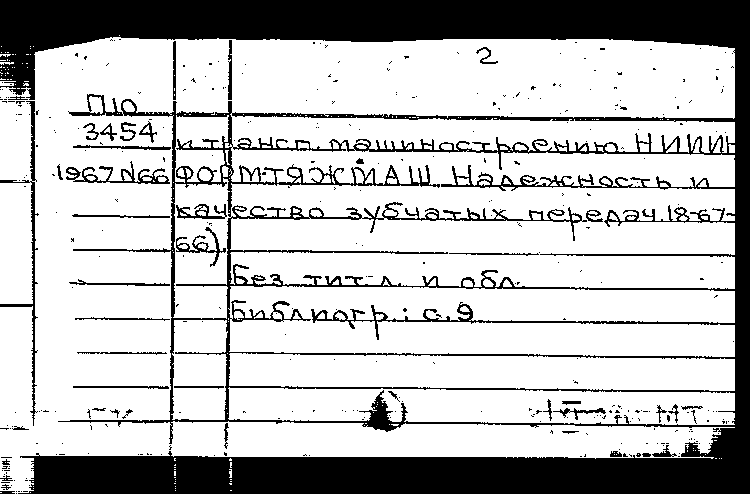 2
П10
3454 и трансп. машиностроению НИИИН
1967 N66 ФОРМТЯЖМАШ Надежность и
качество зубчатых передач. 18-67-
66).
Без тит. л. и обл.
Библиогр.: с. 9
Г.У. МТ.